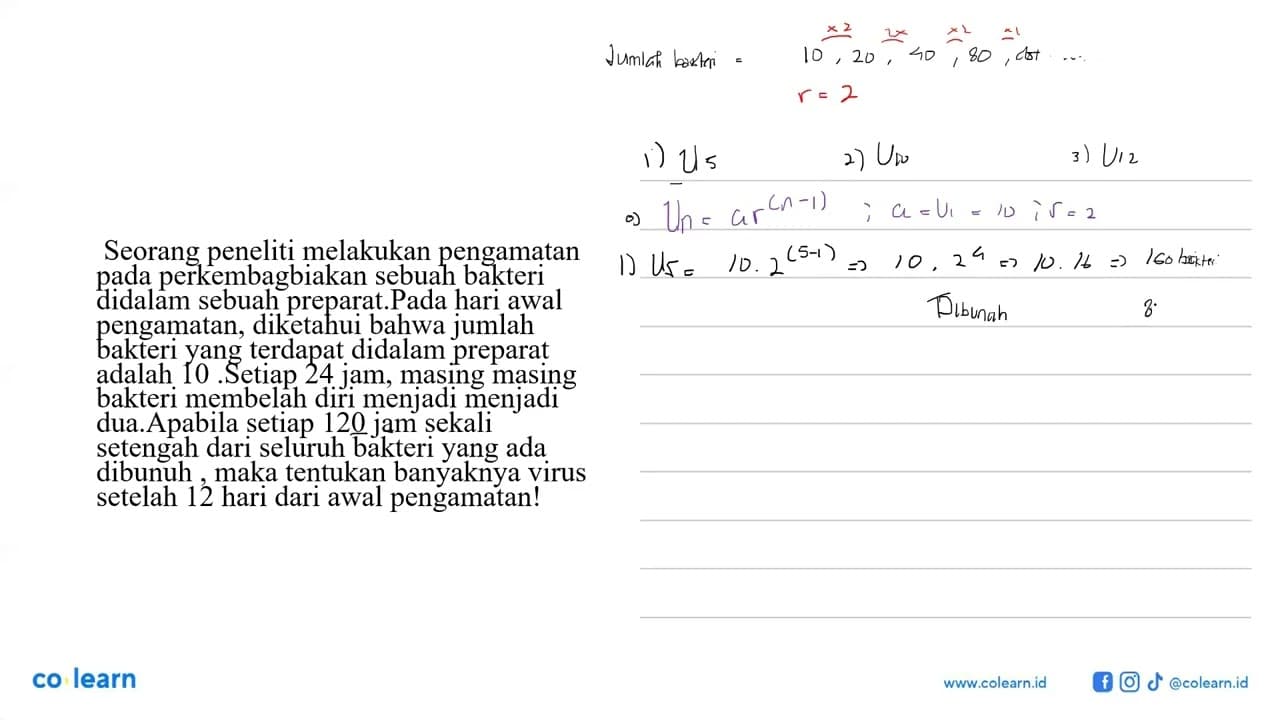 x2 2x x2 x1
Jumlah bakteri = 10 , 20 , 40 , 80 , dst ....
r = 2
1) U5 2) U10 3) U12
Un = ar(n-1) ; a = U1 = 10 ; r = 2
1) U5 = 10 . 2(5-1) => 10 . 2 4 => 10 . 16 => 160 bakteri
Dibunah 8
Seorang peneliti melakukan pengamatan
pada perkembagbiakan sebuah bakteri
didalam sebuah preparat.Pada hari awal
pengamatan, diketahui bahwa jumlah
bakteri yang terdapat didalam preparat
adalah 10 .Setiap 24 jam, masing masing
bakteri membelah diri menjadi menjadi
dua.Apabila setiap 120 jam sekali
setengah dari seluruh bakteri yang ada
dibunuh , maka tentukan banyaknya virus
setelah 12 hari dari awal pengamatan!
co learn
www.colearn.id @colearn.id